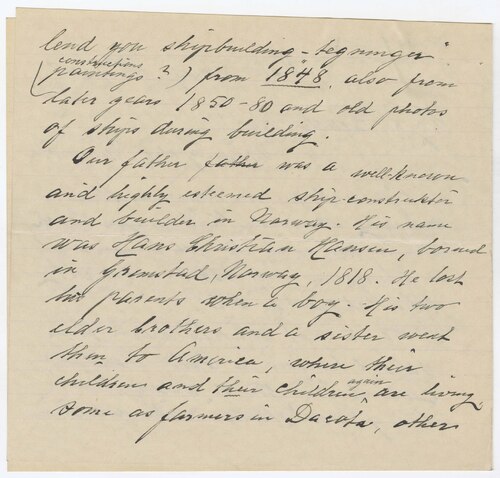 lend you shipbuilding-tegninger"
(constructions paintings?) from 1848, also from
later years 1850-80 and old photos
of ships during building.
Our father father was a well-known
and highly esteemed ship-construktör
and builder in Norway. His name
was Hans Christian Hansen, borned
in Grimstad, Norway, 1818. He lost
his parents when a boy. His two
elder brothers and a sister went
then to America, where their
children and their children again are living,
some as farmers in Dacota, others